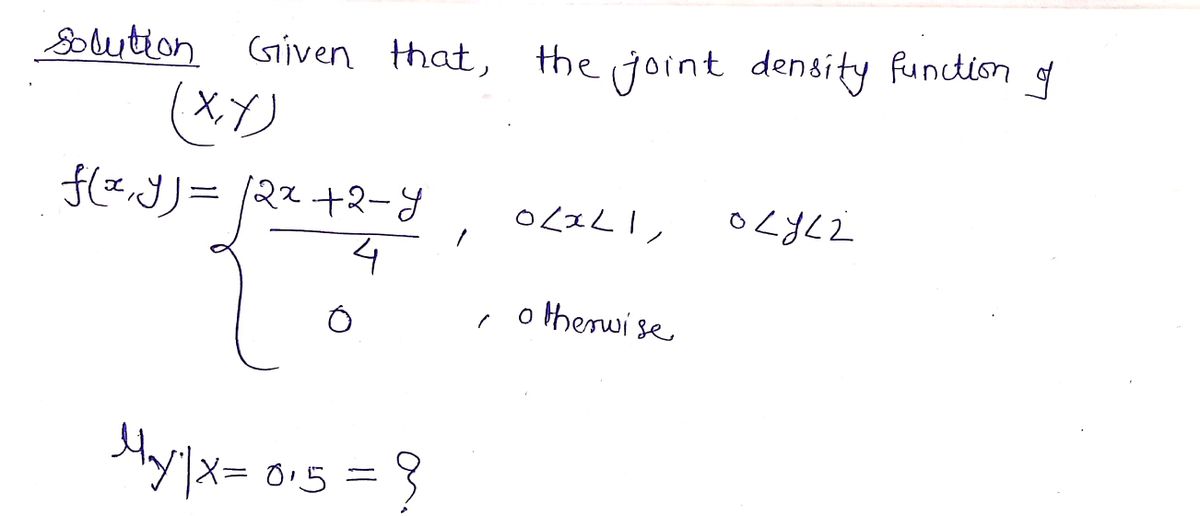 Solution Given that, the joint density function of
(X,Y)
f(x,y) = { (2x+2-y)/4 , 0<x<1, 0<y<2
0 , otherwise
μY|X = 0.5 = ?